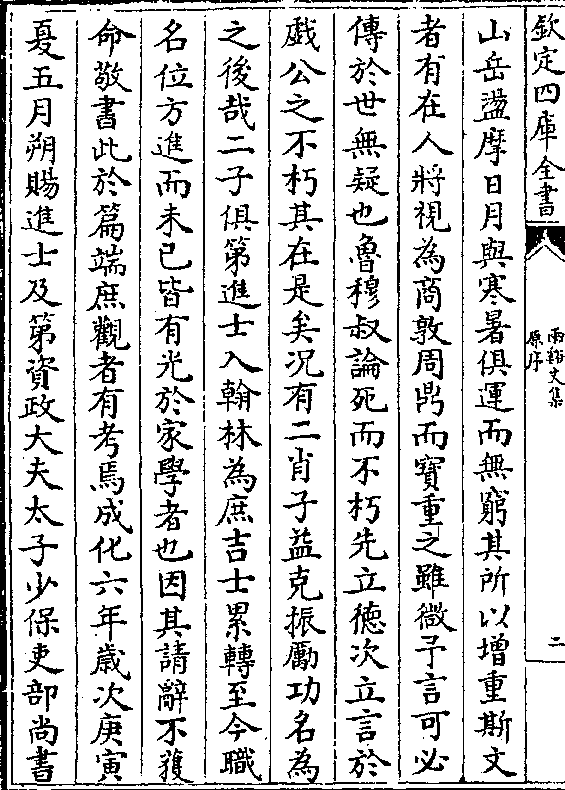 欽定四庫全書
兩谿文集
原序
二
山岳盪摩日月與寒暑俱運而無窮其所以增重斯文
者有在人將視為商敦周鼎而寶重之雖微予言可必
傳於世無疑也魯穆叔論死而不朽先立德次立言於
戲公之不朽其在是矣况有二肖子益克振厲功名為
之後哉二子俱第進士入翰林為庶吉士累轉至今職
名位方進而未已皆有光於家學者也因其請辭不獲
命敬書此於篇端庶觀者有考焉成化六年歲次庚寅
夏五月朔賜進士及第資政大夫太子少保吏部尚書